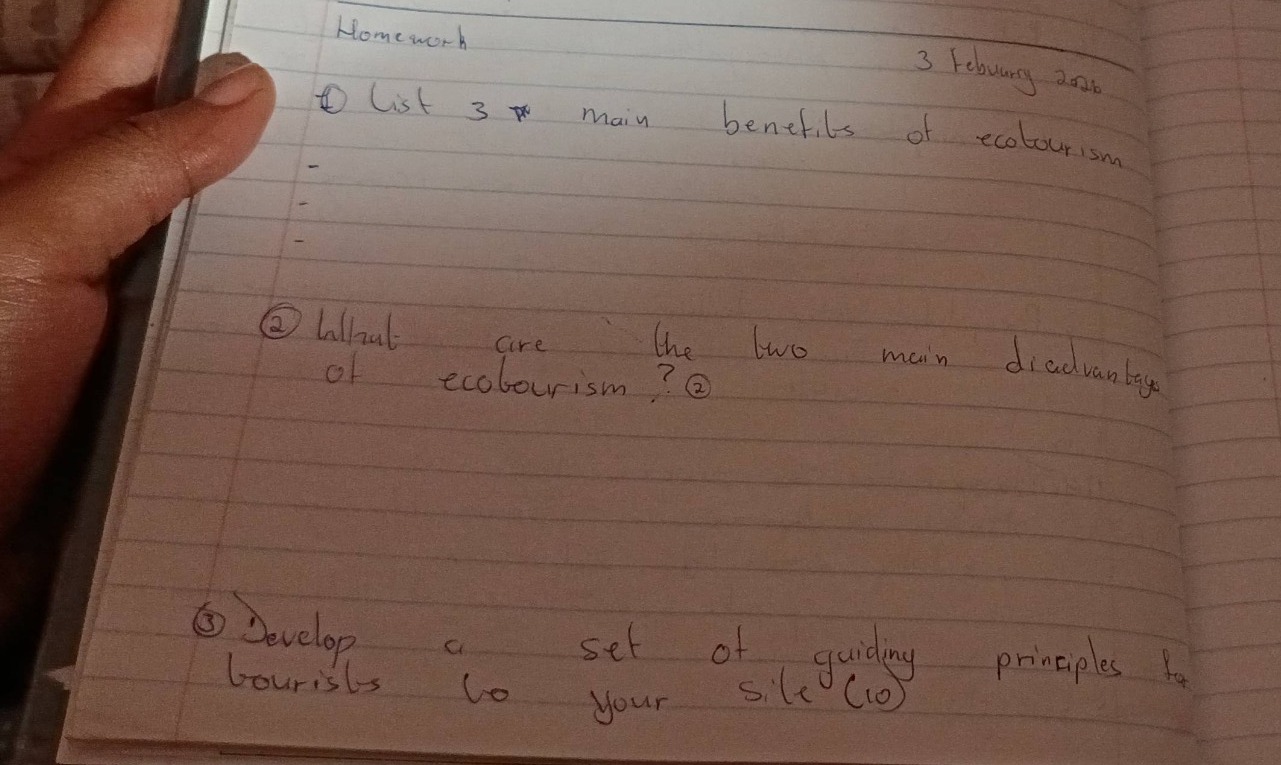 Homework
3 Febuary 2026
① List 3 main benefits of ecotourism
-
-
-
② What are the two main diadvantages
of ecotourism? ②
③ Develop a set of guiding principles for
tourists to your site (10)